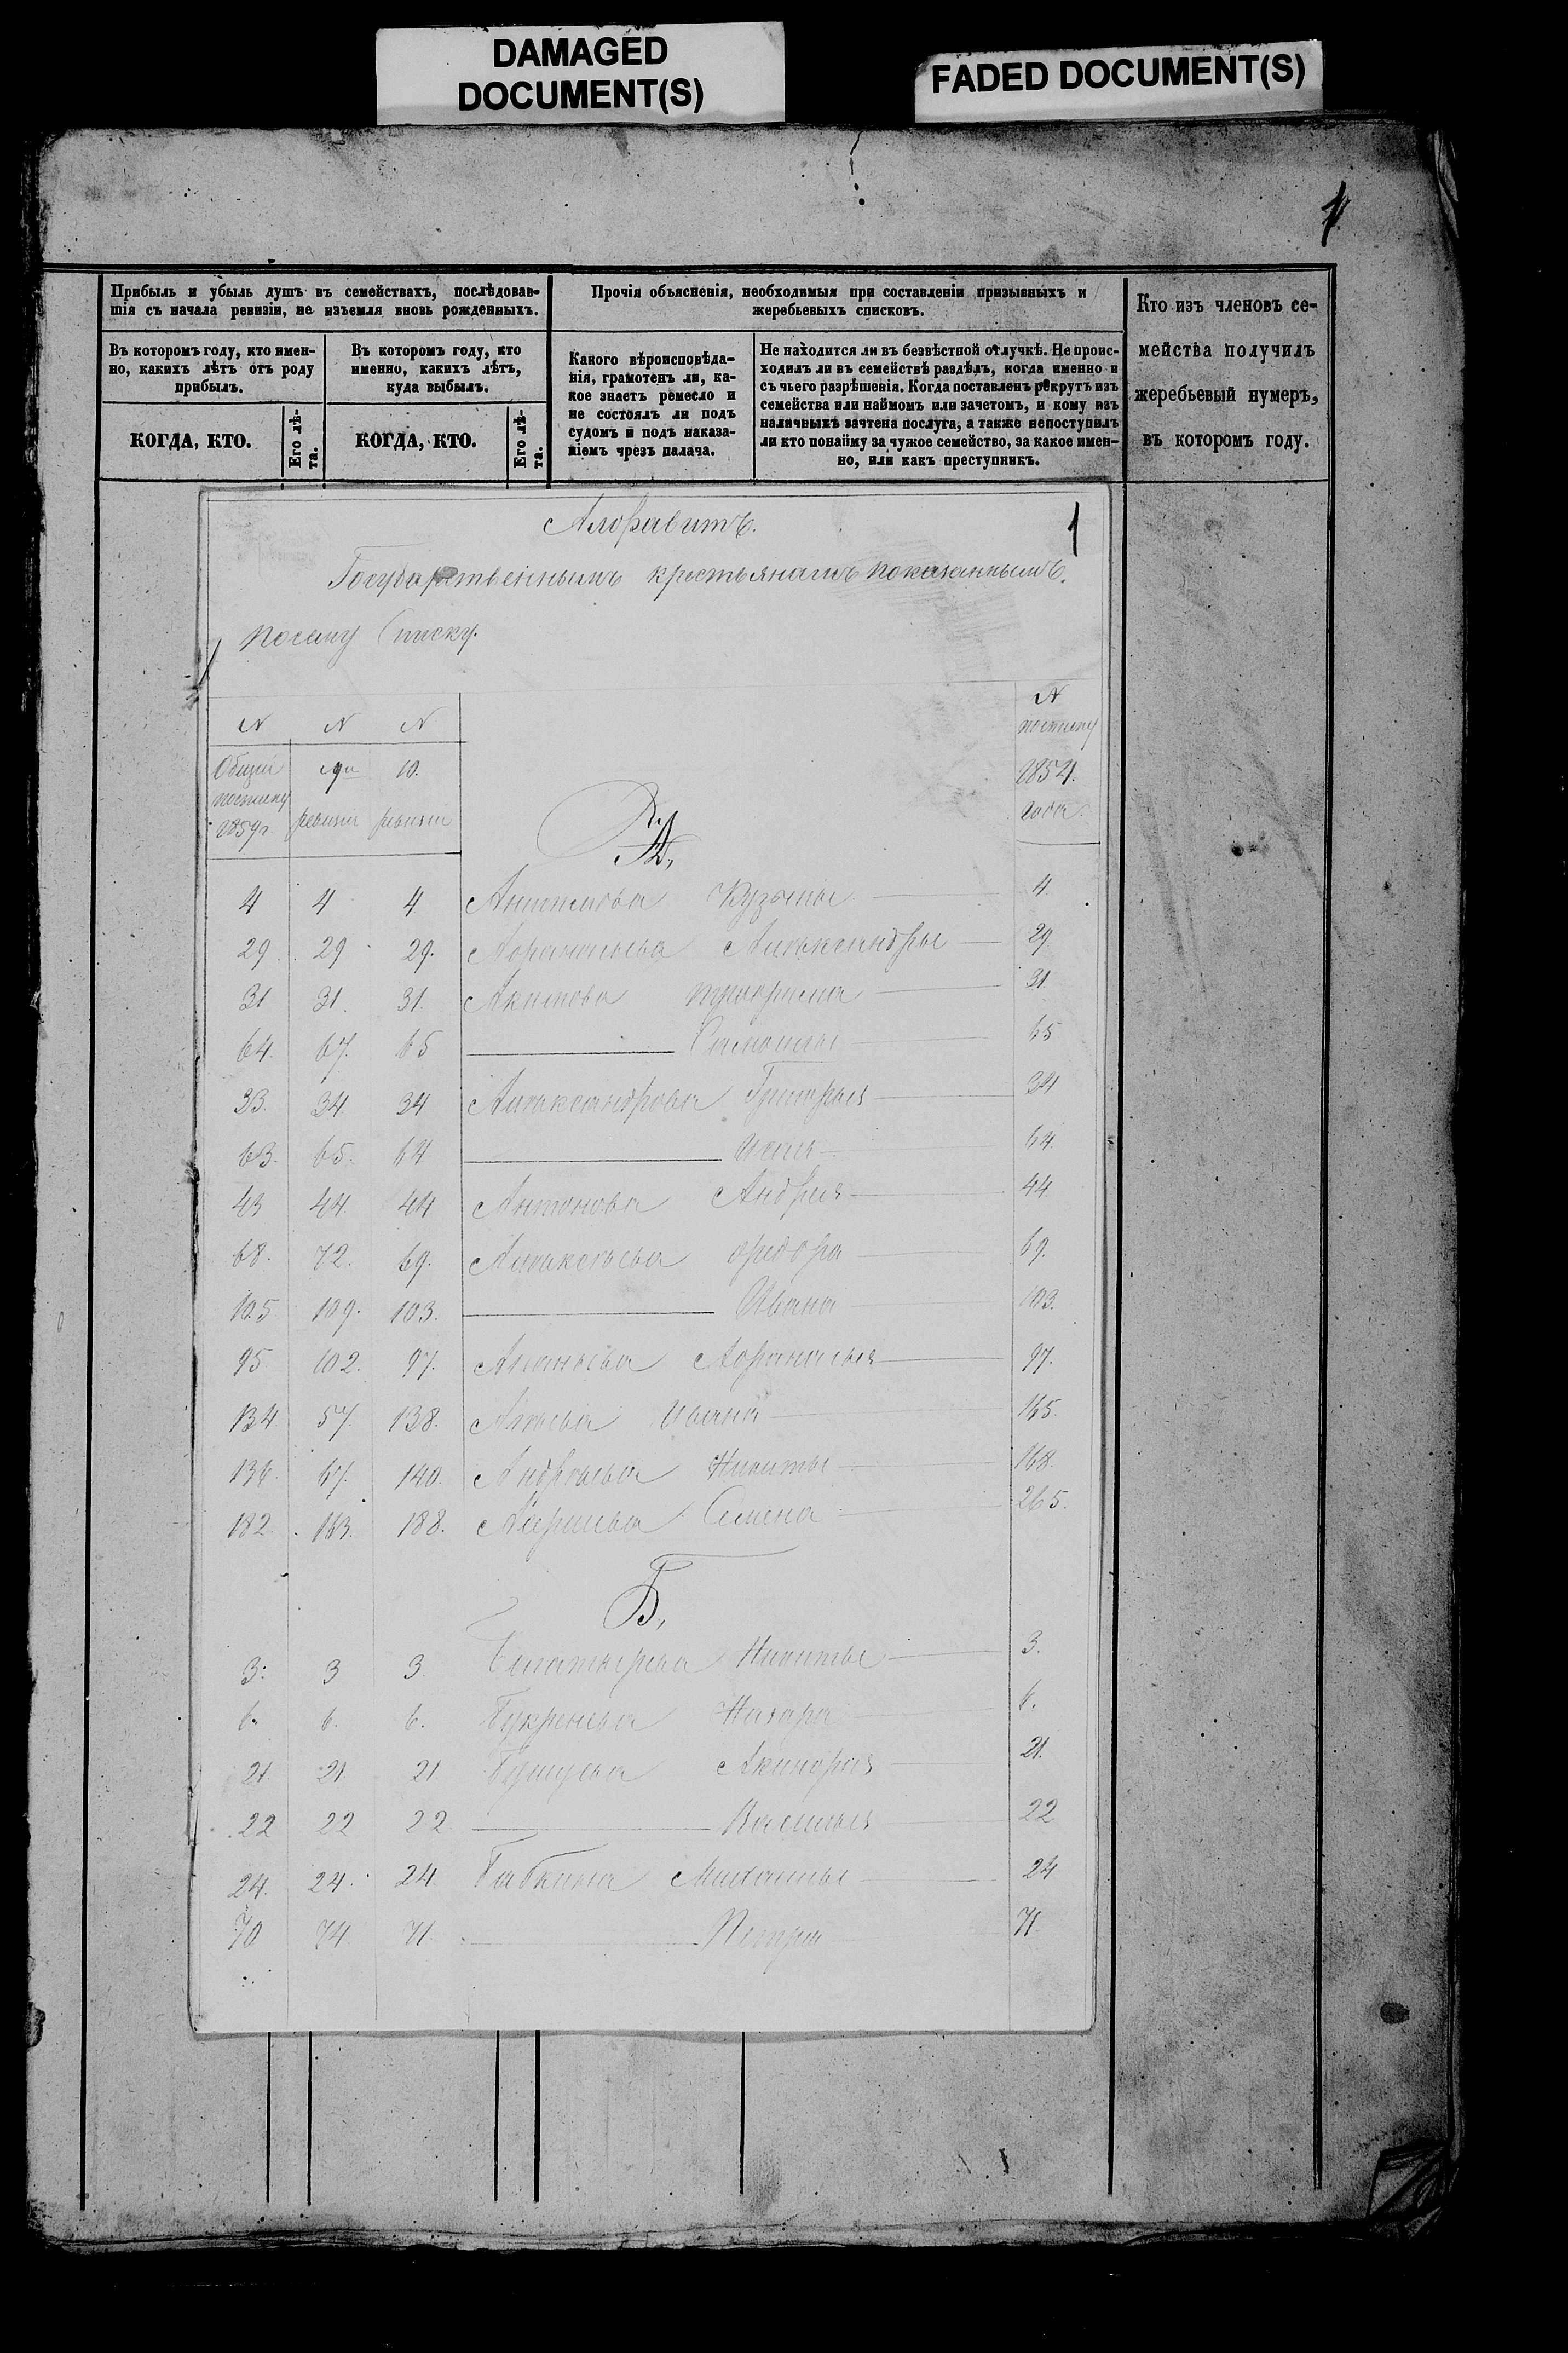 DAMAGED
DOCUMENT(S)
FADED DOCUMENT(S)
1
Прибыль и убыль душъ въ семействахъ, послѣдовав-
шія съ начала ревизіи, не изъемля вновь рожденныхъ.
Въ которомъ году, кто имен-
но, какихъ лѣтъ отъ роду
прибылъ.
КОГДА, КТО.
Его лѣ-
та.
Въ которомъ году, кто
именно, какихъ лѣтъ,
куда выбылъ.
КОГДА, КТО.
Его лѣ-
та.
Прочія объясненія, необходимыя при составленіи призывныхъ и
жеребьевыхъ списковъ.
Какого вѣроисповѣда-
нія, грамотенъ ли, ка-
кое знаетъ ремесло и
не состоялъ ли подъ
судомъ и подъ наказа-
ніемъ чрезъ палача.
Не находится ли въ безвѣстной отлучкѣ. Не проис-
ходилъ ли въ семействѣ раздѣлъ, когда именно и
съ чьего разрѣшенія. Когда поставленъ рекрутъ изъ
семейства или наймомъ или зачетомъ, и кому изъ
наличныхъ зачтена послуга, а также непоступилъ
ли кто понайму за чужое семейство, за какое имен-
но, или какъ преступникъ.
Кто изъ членовъ се-
мейства получилъ
жеребьевый нумеръ,
въ которомъ году.
1
Алфавитъ.
Государственнымъ крестьянамъ показаннымъ
посему Списку.
N N N N
Общий 9й 10. 1854.
1859г ревизи ревизи года
А,
4 4 4 Кузьмы 4.
29 29 29. Афанасьева Александры 29
31 31. 31. Акимова Трофима 31
64. 67. 65 65
33. 34 34 Александрова Григорья 34
63. 65. 64 64.
43 44. 44 Антонова Андрея 44
68. 72. 69. Алексеева Федора 69.
105 109. 103. Ивана 103.
95 102. 97. Ананьева Афанасья 97.
134. 57. 138. Ивана 165.
136. 67. 140. Андреева Никиты 168.
182. 183. 188. Семена 265.
Б,
3. 3 3. Никиты 3.
6. 6. 6. Назара 6.
21 21 21 21.
22 22 22 Василья 22
24. 24. 24. Бабкина Михайлы 24
70 74. 71. Петра 71.